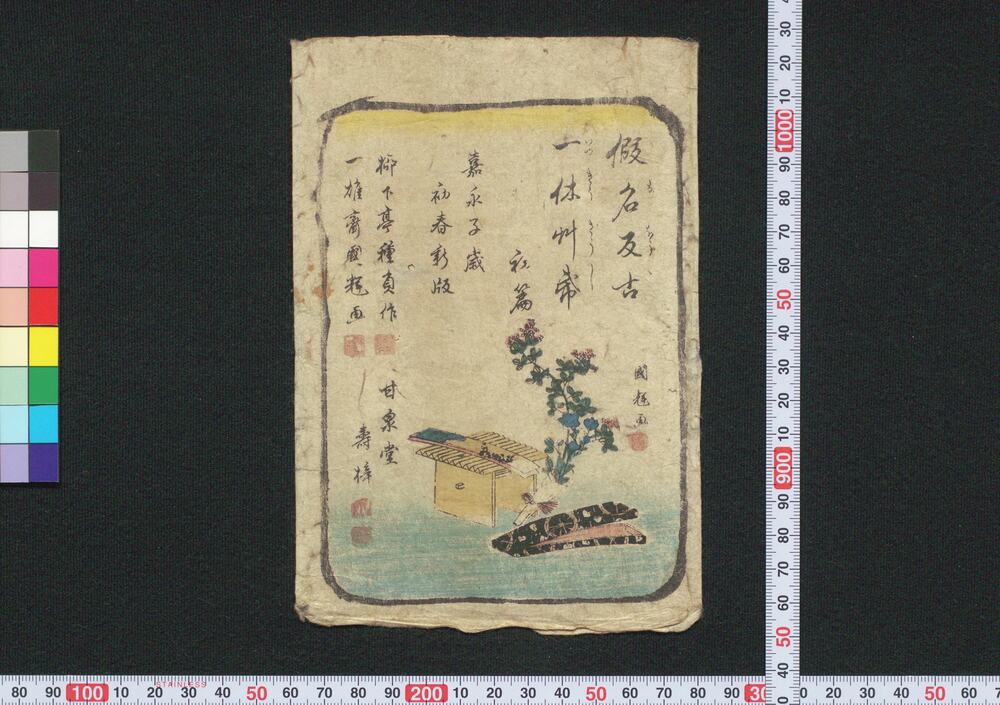 假名反古
一休艸帋
初篇
嘉永子歳
初春新版
柳下亭種員作
一雄齋國輝画
甘泉堂
壽梓
國輝画
30 20 10 1000 90 80 70 60 50 40 30 20 10 900 90 80 70 60 50 40
80 90 100 10 20 30 40 50 60 70 80 90 200 10 20 30 40 50 60 70 80 90 30
STAINLESS
0 10 20 30 40 50 60